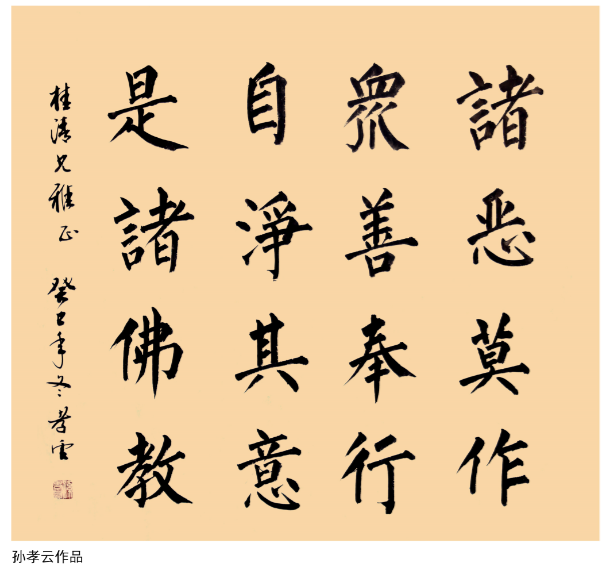 諸恶莫作
衆善奉行
自淨其意
是諸佛教
桂清兄雅正 癸巳年冬 孝雲
孙孝云作品